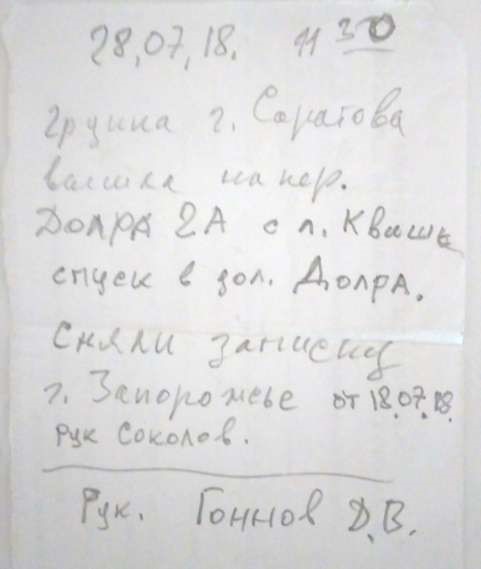 28,07,18. 11 30
группа г. Саратова
вышла на пер.
Долра 2А с л. Квиш
спуск в дол. Долра.
Сняли записку
г. Запорожье от 18.07.18.
рук Соколов.
Рук. Гоннов Д.В.